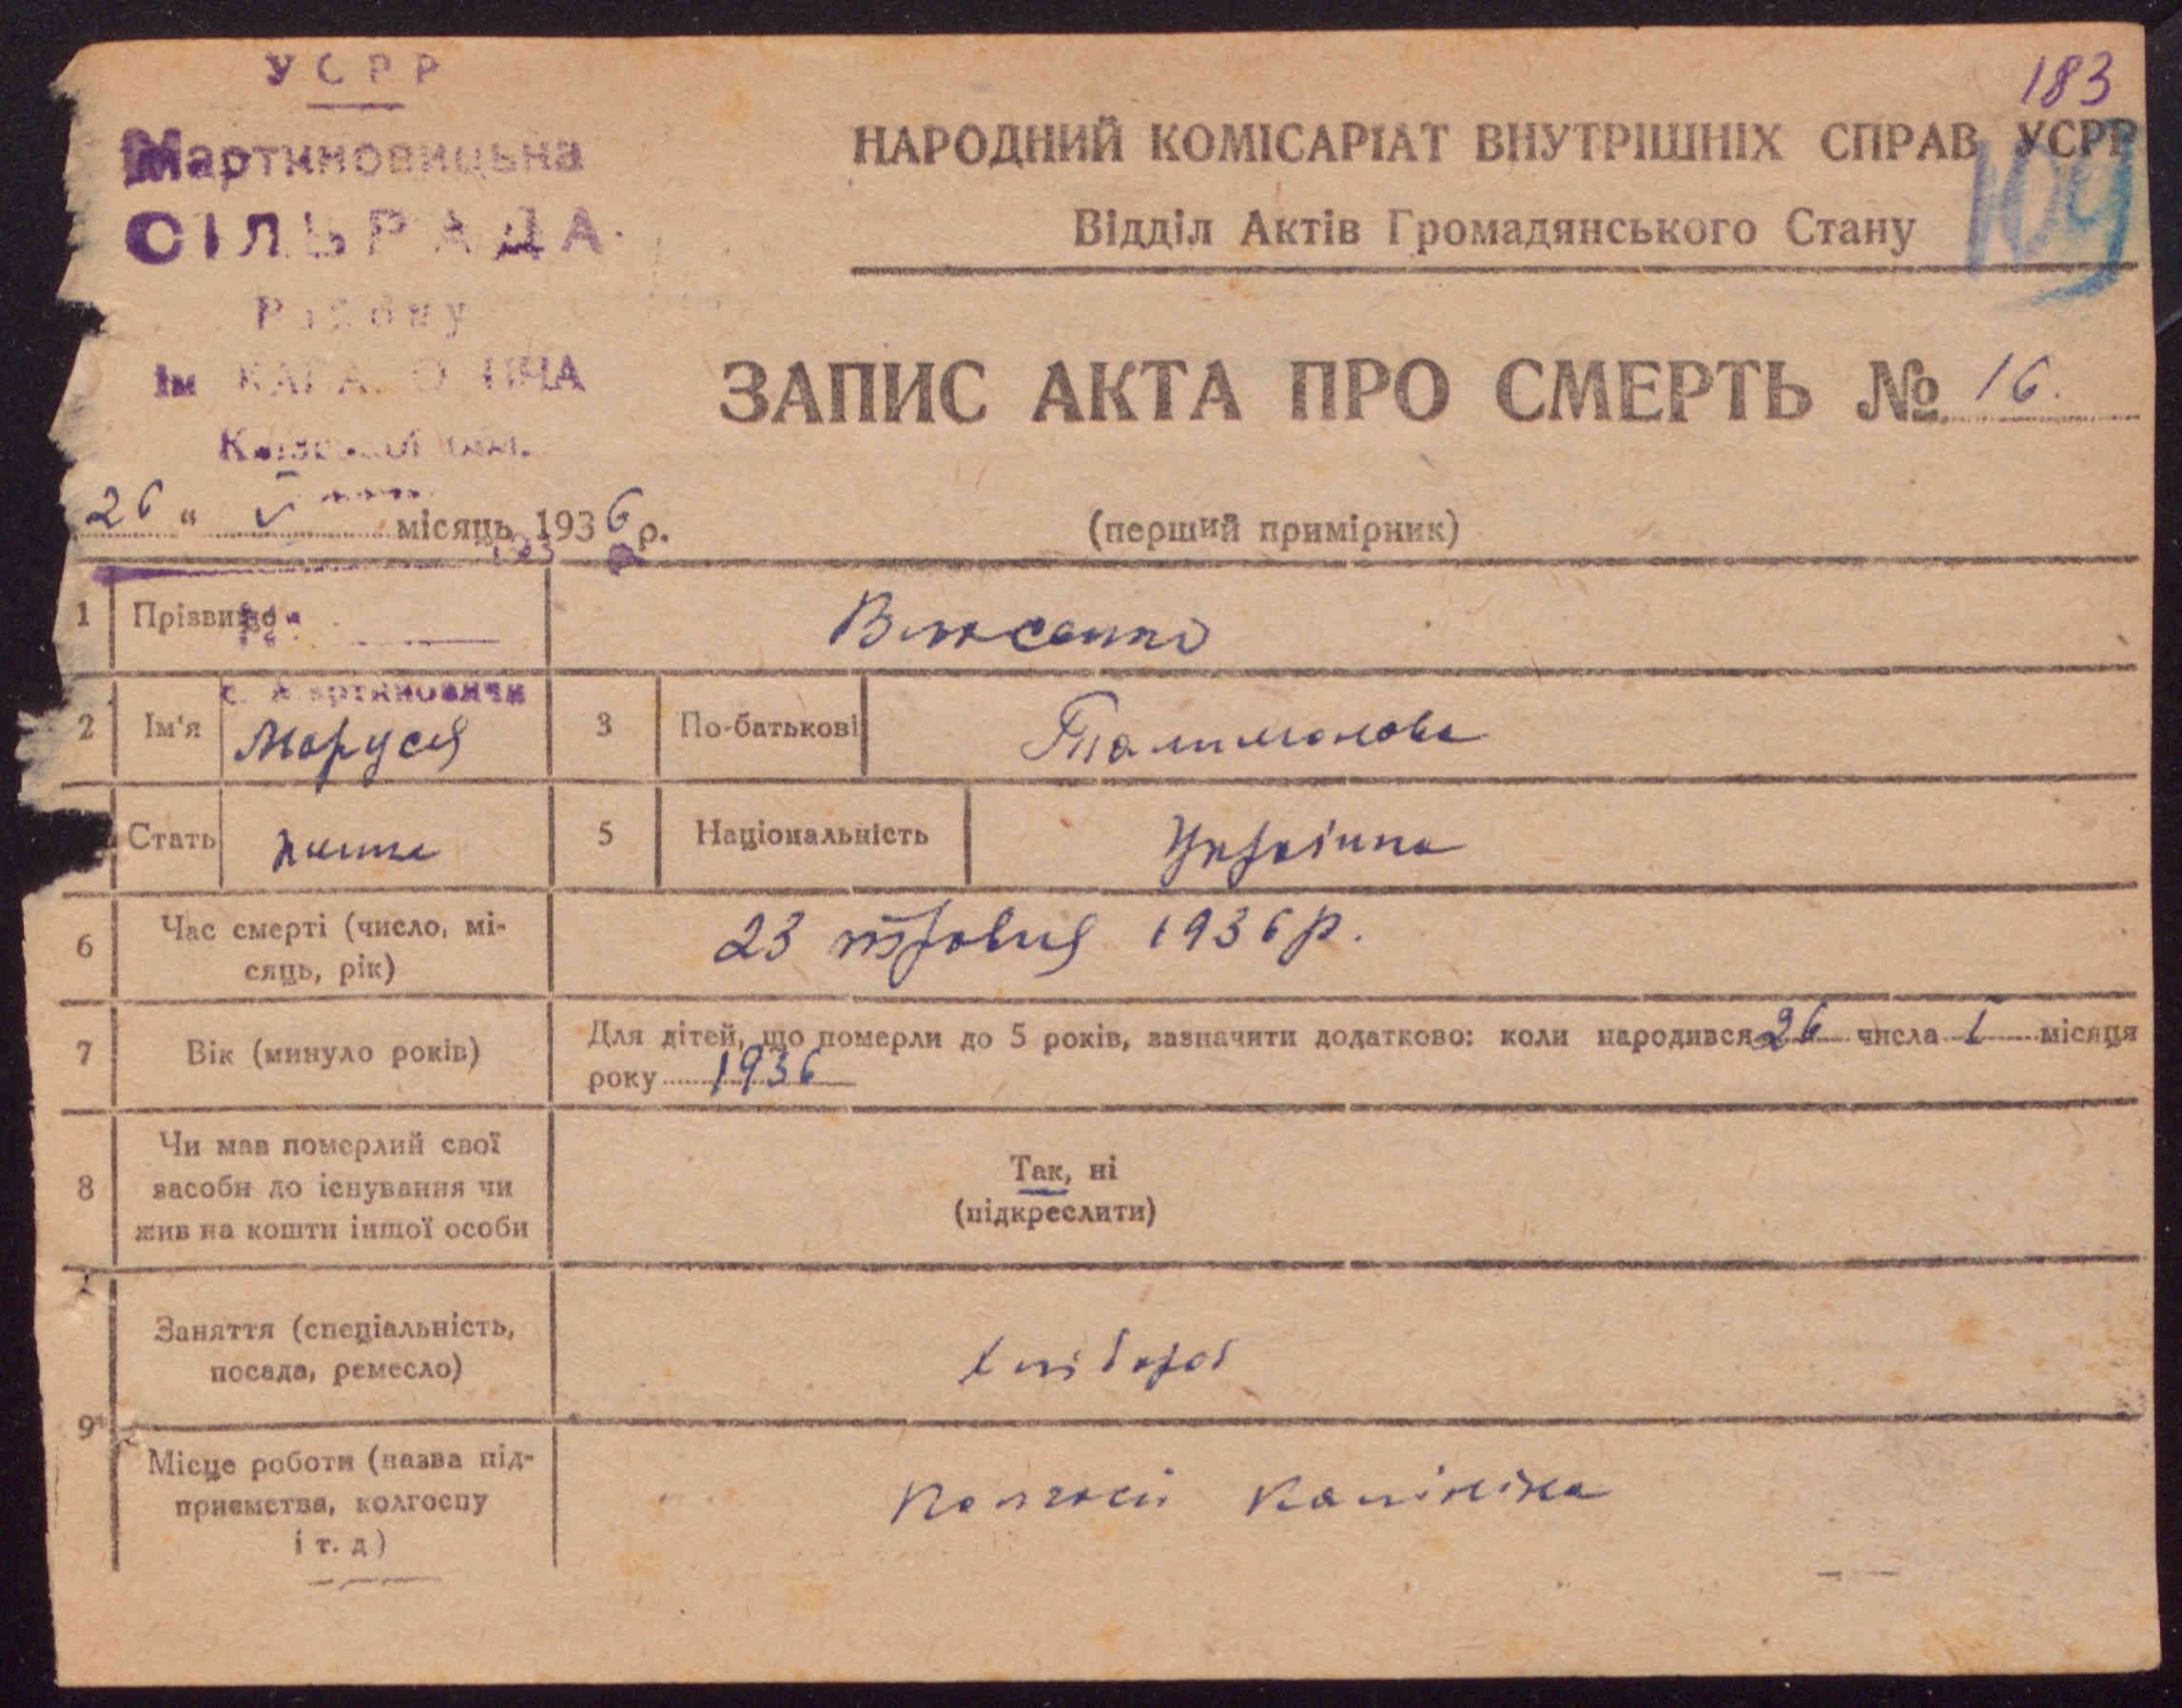 УСРР
183
Мартиновицьна
СІЛЬРАДА
Району
ім КАГАНОВИЧА
Київської обл.
НАРОДНИЙ КОМІСАРІАТ ВНУТРІШНІХ СПРАВ УСРР
Відділ Актів Громадянського Стану
109
ЗАПИС АКТА ПРО СМЕРТЬ № 16.
26 " V місяць 1936 р.
(перший примірник)
1 Прізвище
с. Мартиновичи
2 Ім'я Маруся 3 По-батькові
Стать жінка 5 Національність Українка
6 Час смерті (число, мі-
сяць, рік) 23 травня 1936 р.
7 Вік (минуло років) Для дітей, що померли до 5 років, зазначити додатково: коли народився 26 числа I місяця
року 1936
8 Чи мав померлий свої
засоби до існування чи
жив на кошти іншої особи
Так, ні
(підкреслити)
9 Заняття (спеціальність,
посада, ремесло) хлібороб
Місце роботи (назва під-
приємства, колгоспу
і т. д) Колгосп Калініна